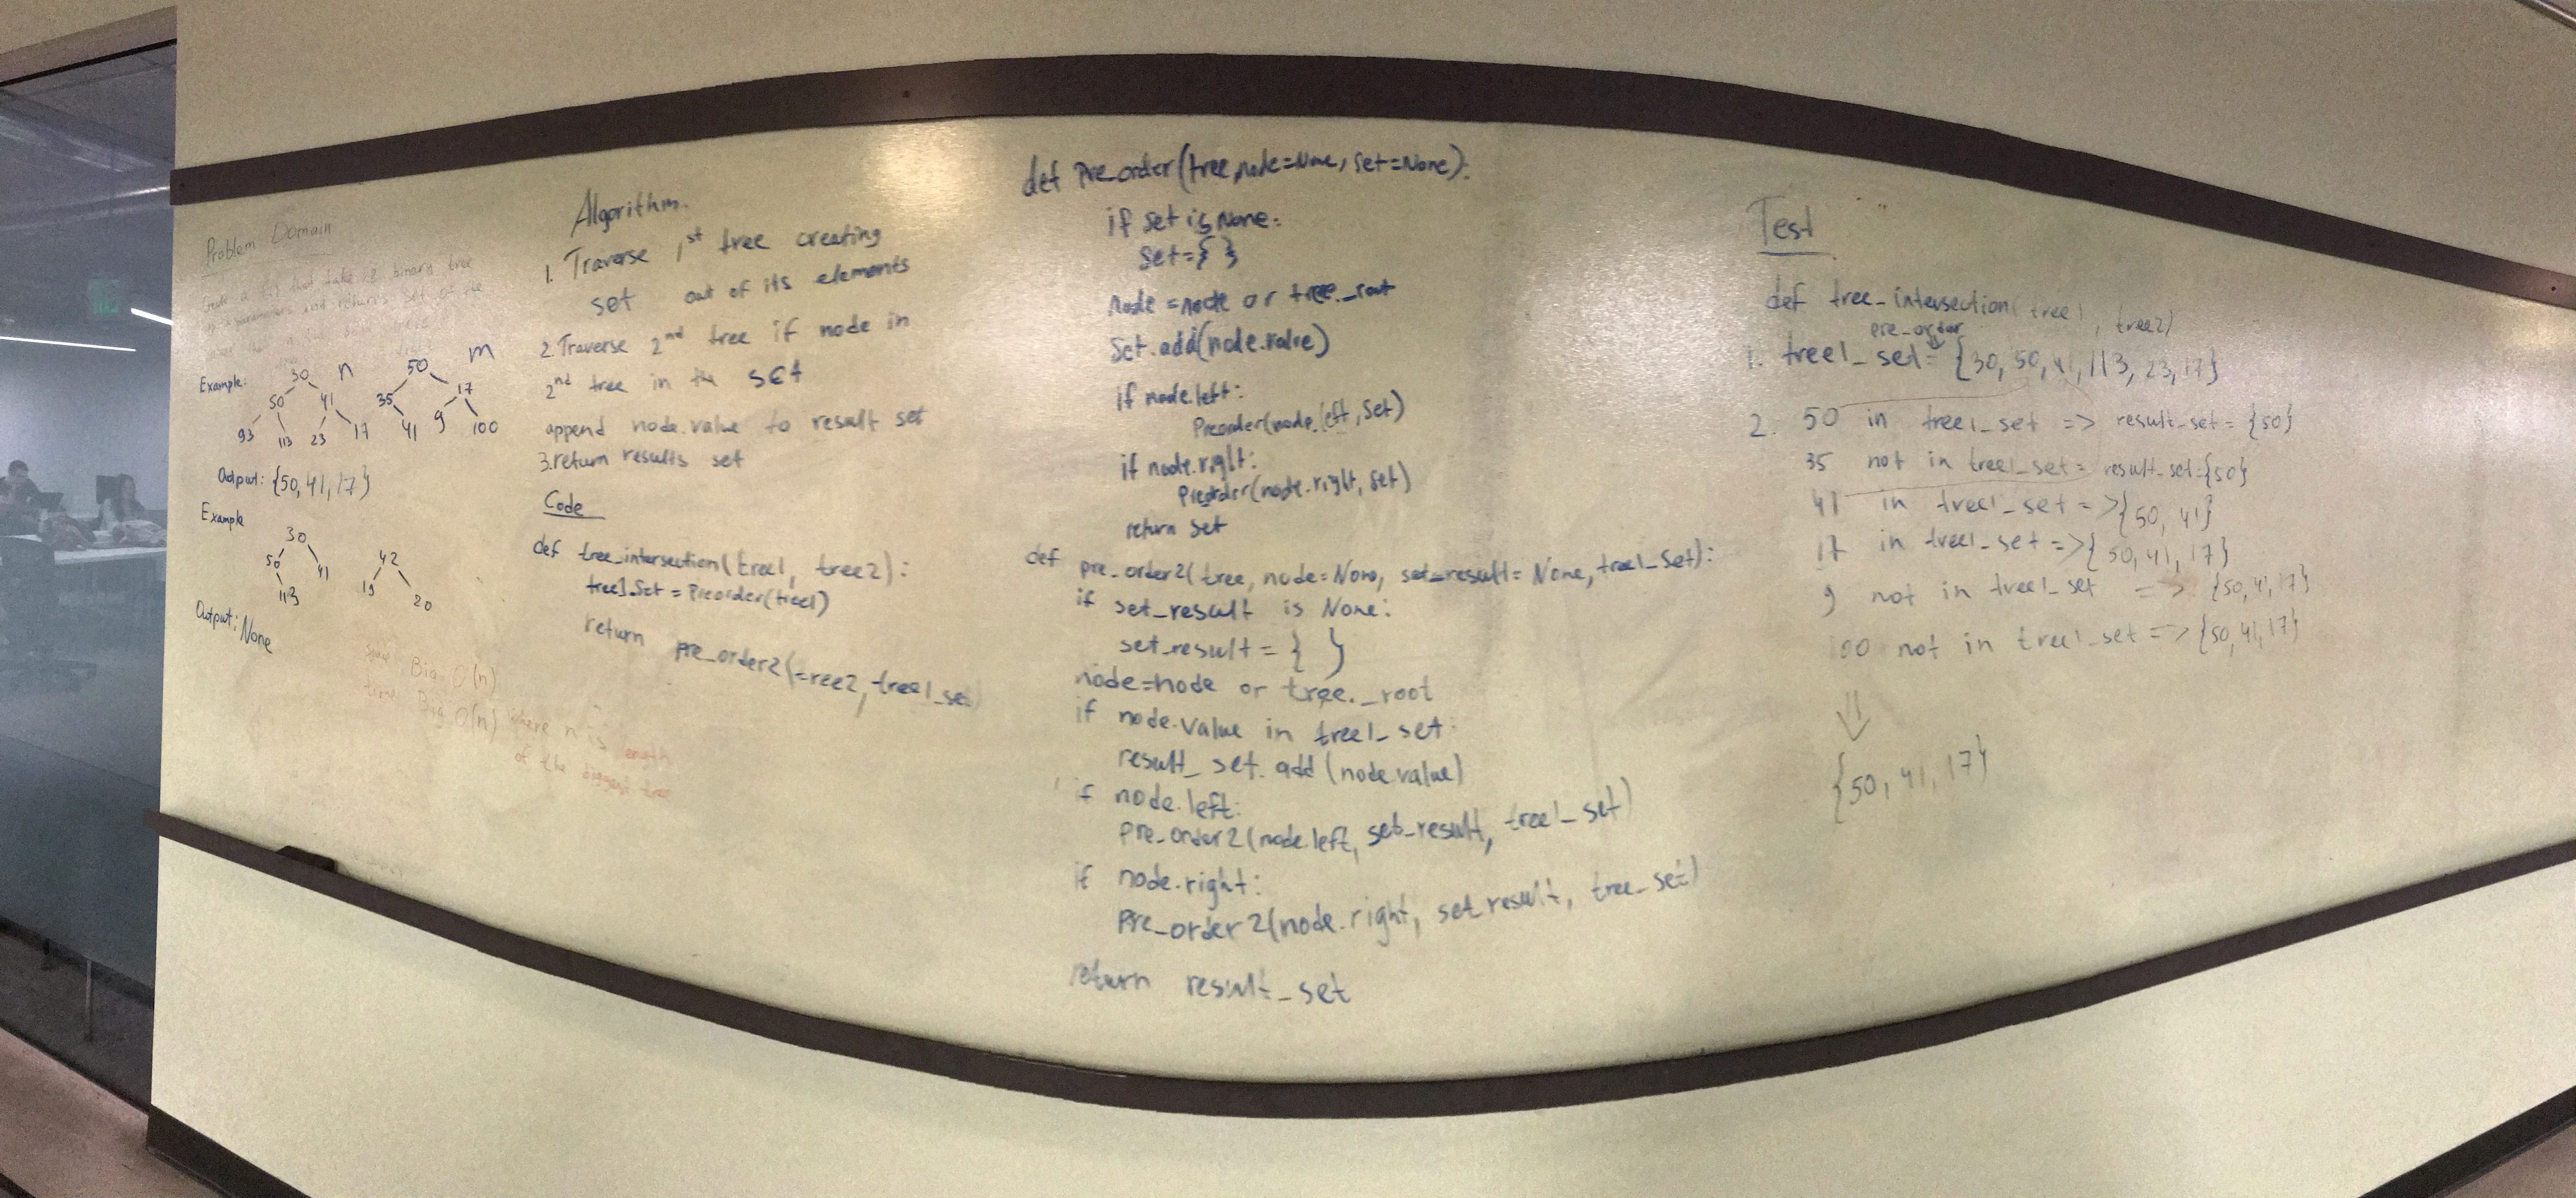 Problem Domain
Create a fn that take 2 binary tree
as parameters and returns set of the
Example:
n
m
30
50
50
41
35
17
93
113
23
17
41
9
100
Output: {50, 41, 17}
Example
30
50
41
113
42
19
20
Output: None
space Big O(n)
time Big O(n) where n is length
of the biggest tree
Algorithm.
1. Traverse 1st tree creating
set out of its elements
2. Traverse 2nd tree if node in
2nd tree in the set
append node.value to result set
3. return results set
Code
def tree_intersection(tree1, tree2):
tree1_set = Preorder(tree1)
return pre_order2(tree2, tree1_set)
def Pre_order(tree, node=None, set=None):
if set is None:
set={ }
node = node or tree._root
Set.add(node.value)
if node.left:
Preorder(node.left, set)
if node.right:
Preorder(node.right, set)
return set
def pre_order2(tree, node=None, set_result=None, tree1_set):
if set_result is None:
set_result = { }
node=node or tree._root
if node.value in tree1_set:
result_set.add(node.value)
if node.left:
pre_order2(node.left, set_result, tree1_set)
if node.right:
pre_order2(node.right, set_result, tree_set)
return result_set
Test
def tree_intersection(tree1, tree2)
pre_order
1. tree1_set = {30, 50, 41, 113, 23, 17}
2. 50 in tree1_set => result_set = {50}
35 not in tree1_set = result_set={50}
41 in tree1_set => {50, 41}
17 in tree1_set => {50, 41, 17}
9 not in tree1_set => {50, 41, 17}
100 not in tree1_set => {50, 41, 17}
{50, 41, 17}